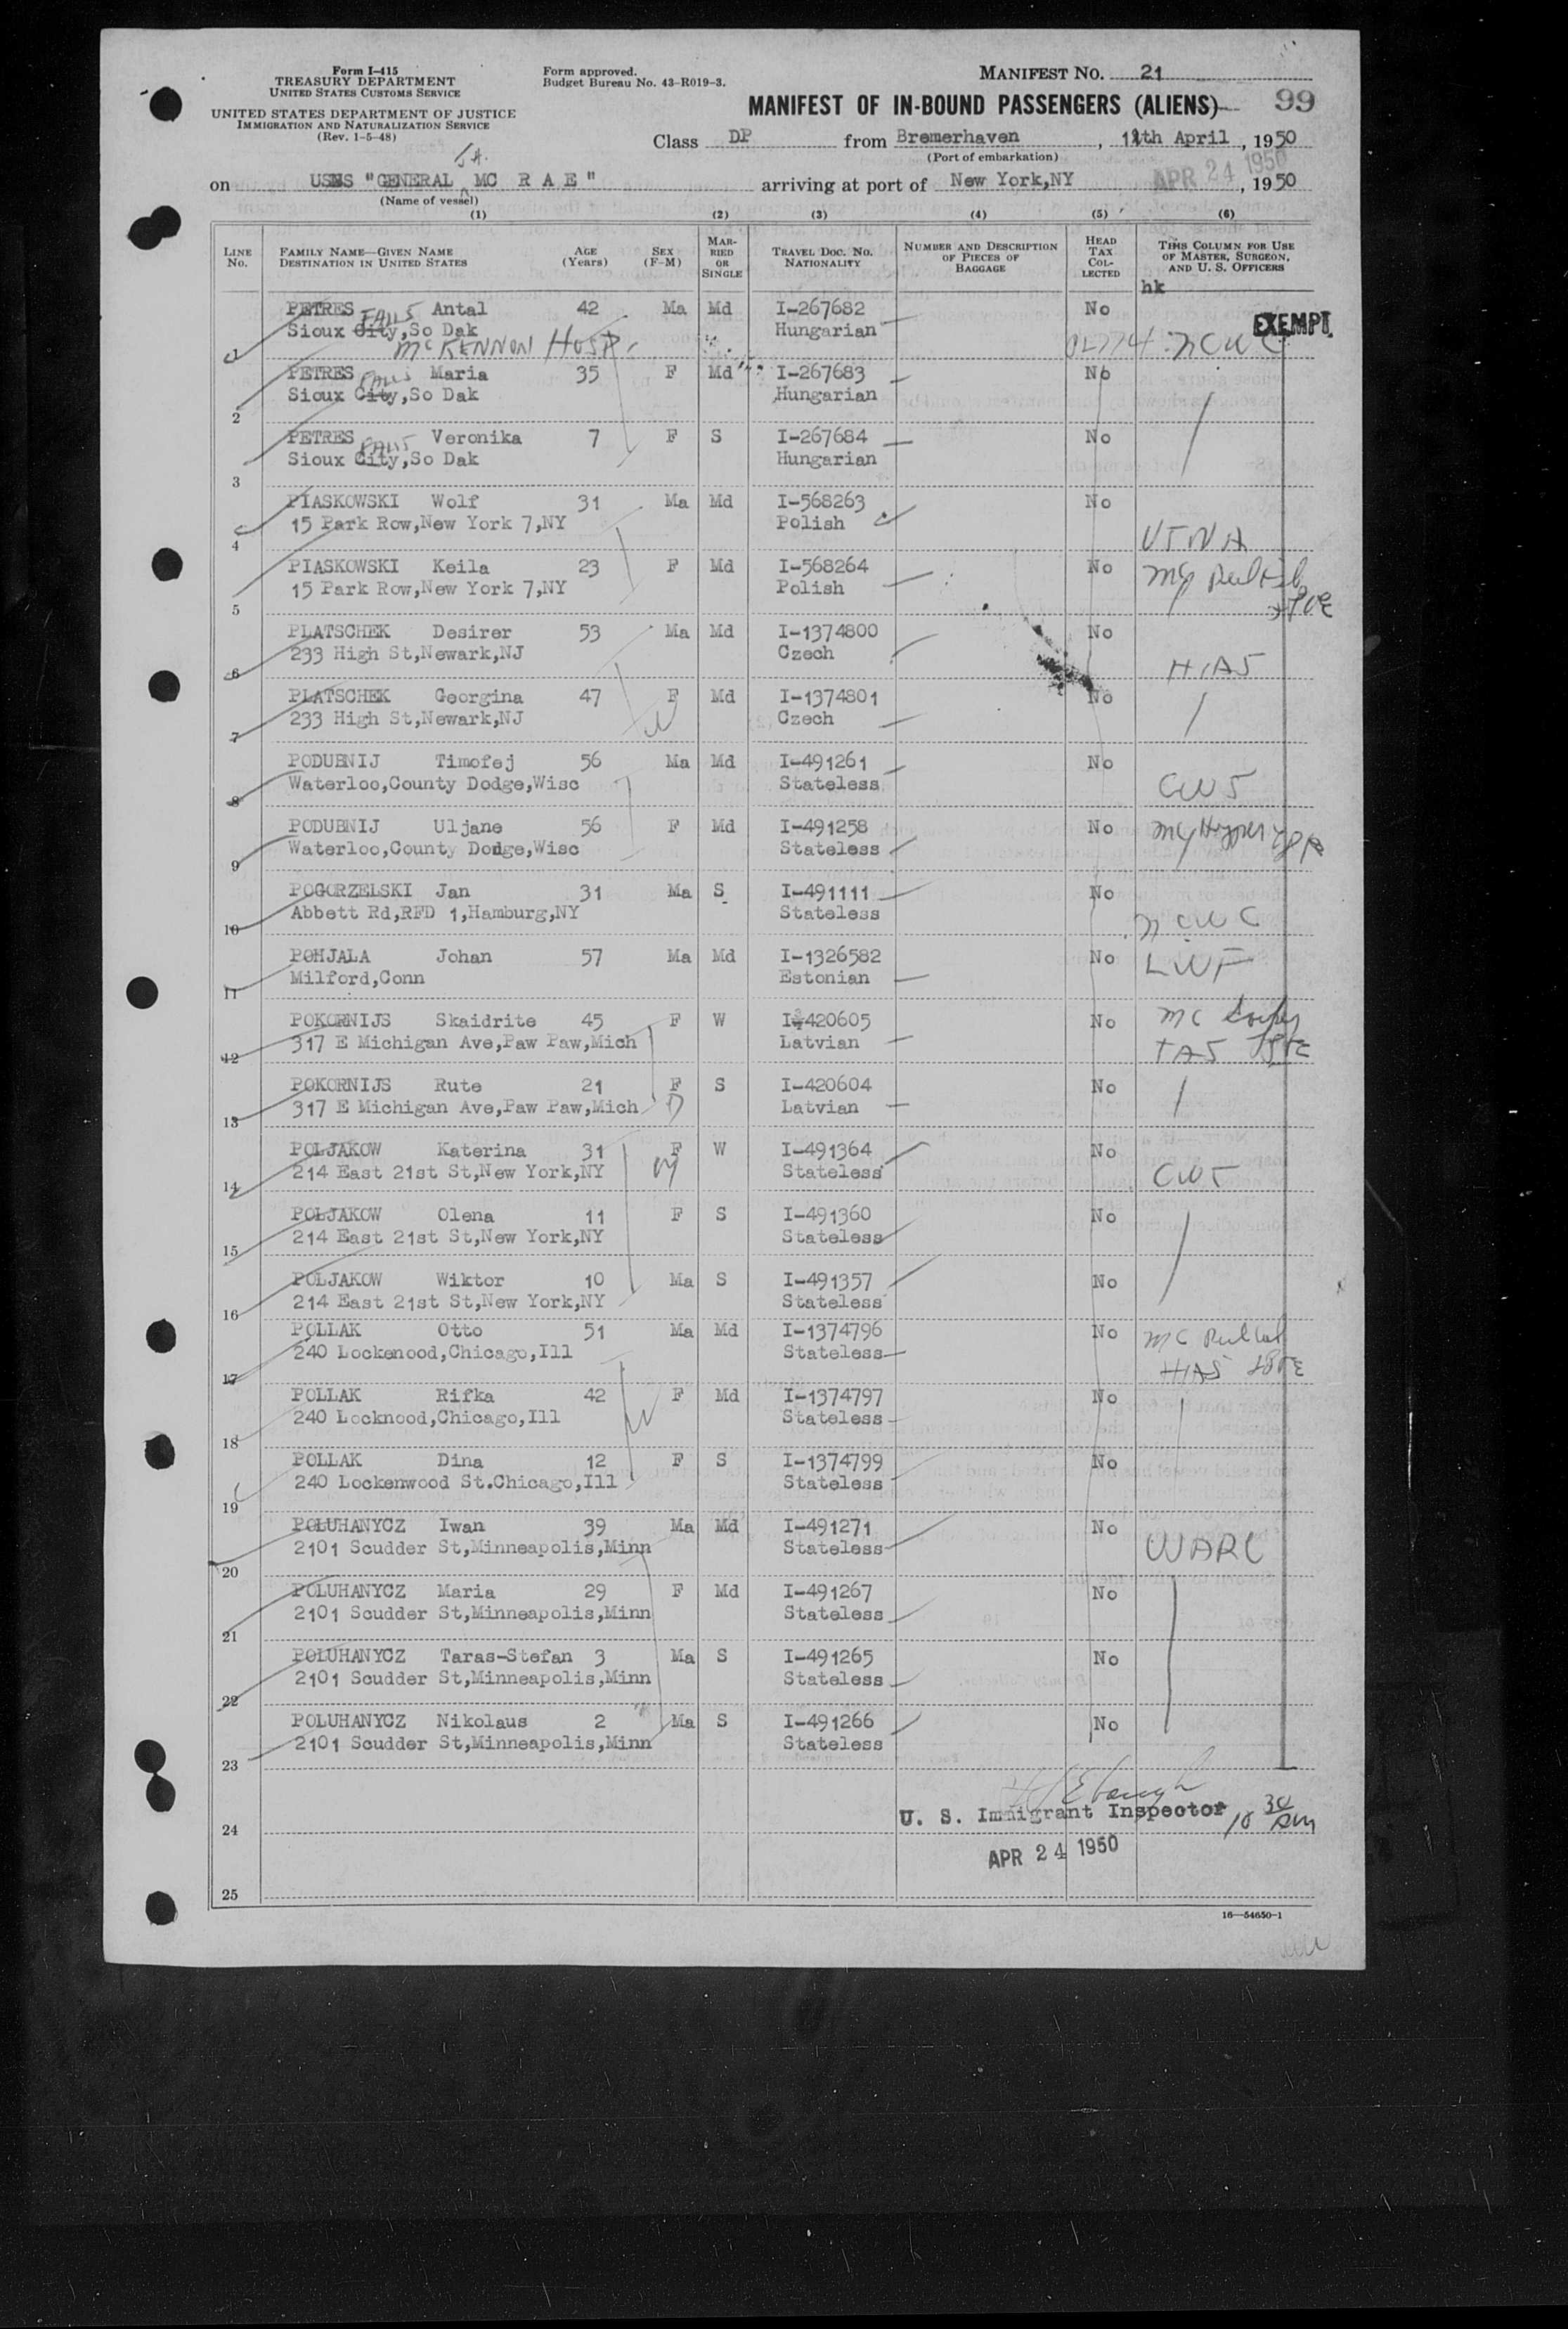 Form I-415
TREASURY DEPARTMENT
UNITED STATES CUSTOMS SERVICE
UNITED STATES DEPARTMENT OF JUSTICE
IMMIGRATION AND NATURALIZATION SERVICE
(Rev. 1-5-48)
Form approved.
Budget Bureau No. 43-R019-3.
MANIFEST No. 21
MANIFEST OF IN-BOUND PASSENGERS (ALIENS) 99
Class DP from Bremerhaven, 12th April, 1950
(Port of embarkation)
on USNS "GENERAL MC R A E" arriving at port of New York,NY APR 24 1950, 1950
(Name of vessel)
(1) (2) (3) (4) (5) (6)
LINE No. FAMILY NAME—GIVEN NAME DESTINATION IN UNITED STATES AGE (Years) SEX (F-M) MARRIED OR SINGLE TRAVEL DOC. No. NATIONALITY NUMBER AND DESCRIPTION OF PIECES OF BAGGAGE HEAD TAX COLLECTED THIS COLUMN FOR USE OF MASTER, SURGEON, AND U. S. OFFICERS
hk
PETRES Antal 42 Ma Md I-267682 No EXEMPT
Sioux City,So Dak FALLS Hungarian
1 McKENNON HOSP. NCWC
PETRES Maria 35 F Md I-267683 No
Sioux City,So Dak FALLS Hungarian
2
PETRES Veronika 7 F S I-267684 No
Sioux City,So Dak FALLS Hungarian
3
PIASKOWSKI Wolf 31 Ma Md I-568263 No
15 Park Row,New York 7,NY Polish
4 USNA
PIASKOWSKI Keila 23 F Md I-568264 No
15 Park Row,New York 7,NY Polish
5
PLATSCHEK Desirer 53 Ma Md I-1374800 No
233 High St,Newark,NJ Czech
6 HIAS
PLATSCHEK Georgina 47 F Md I-1374801 No
233 High St,Newark,NJ Czech
7
PODUBNIJ Timofej 56 Ma Md I-491261 No
Waterloo,County Dodge,Wisc Stateless
8 CWS
PODUBNIJ Uljane 56 F Md I-491258 No
Waterloo,County Dodge,Wisc Stateless
9
POGORZELSKI Jan 31 Ma S I-491111 No
Abbett Rd,RFD 1,Hamburg,NY Stateless
10 NCWC
POHJALA Johan 57 Ma Md I-1326582 No LWF
Milford,Conn Estonian
11
POKORNIJS Skaidrite 45 F W I-420605 No
317 E Michigan Ave,Paw Paw,Mich Latvian
12
POKORNIJS Rute 21 F S I-420604 No
317 E Michigan Ave,Paw Paw,Mich Latvian
13
POLJAKOW Katerina 31 F W I-491364 No
214 East 21st St,New York,NY Stateless CWS
14
POLJAKOW Olena 11 F S I-491360 No
214 East 21st St,New York,NY Stateless
15
POLJAKOW Wiktor 10 Ma S I-491357 No
214 East 21st St,New York,NY Stateless
16
POLLAK Otto 51 Ma Md I-1374796 No
240 Lockenood,Chicago,Ill Stateless
17 HIAS
POLLAK Rifka 42 F Md I-1374797 No
240 Locknood,Chicago,Ill Stateless
18
POLLAK Dina 12 F S I-1374799 No
240 Lockenwood St.Chicago,Ill Stateless
19
POLUHANYCZ Iwan 39 Ma Md I-491271 No
2101 Scudder St,Minneapolis,Minn Stateless WARC
20
POLUHANYCZ Maria 29 F Md I-491267 No
2101 Scudder St,Minneapolis,Minn Stateless
21
POLUHANYCZ Taras-Stefan 3 Ma S I-491265 No
2101 Scudder St,Minneapolis,Minn Stateless
22
POLUHANYCZ Nikolaus 2 Ma S I-491266 No
2101 Scudder St,Minneapolis,Minn Stateless
23
U. S. Immigrant Inspector 10 30 AM
24
APR 24 1950
25
16—54650-1